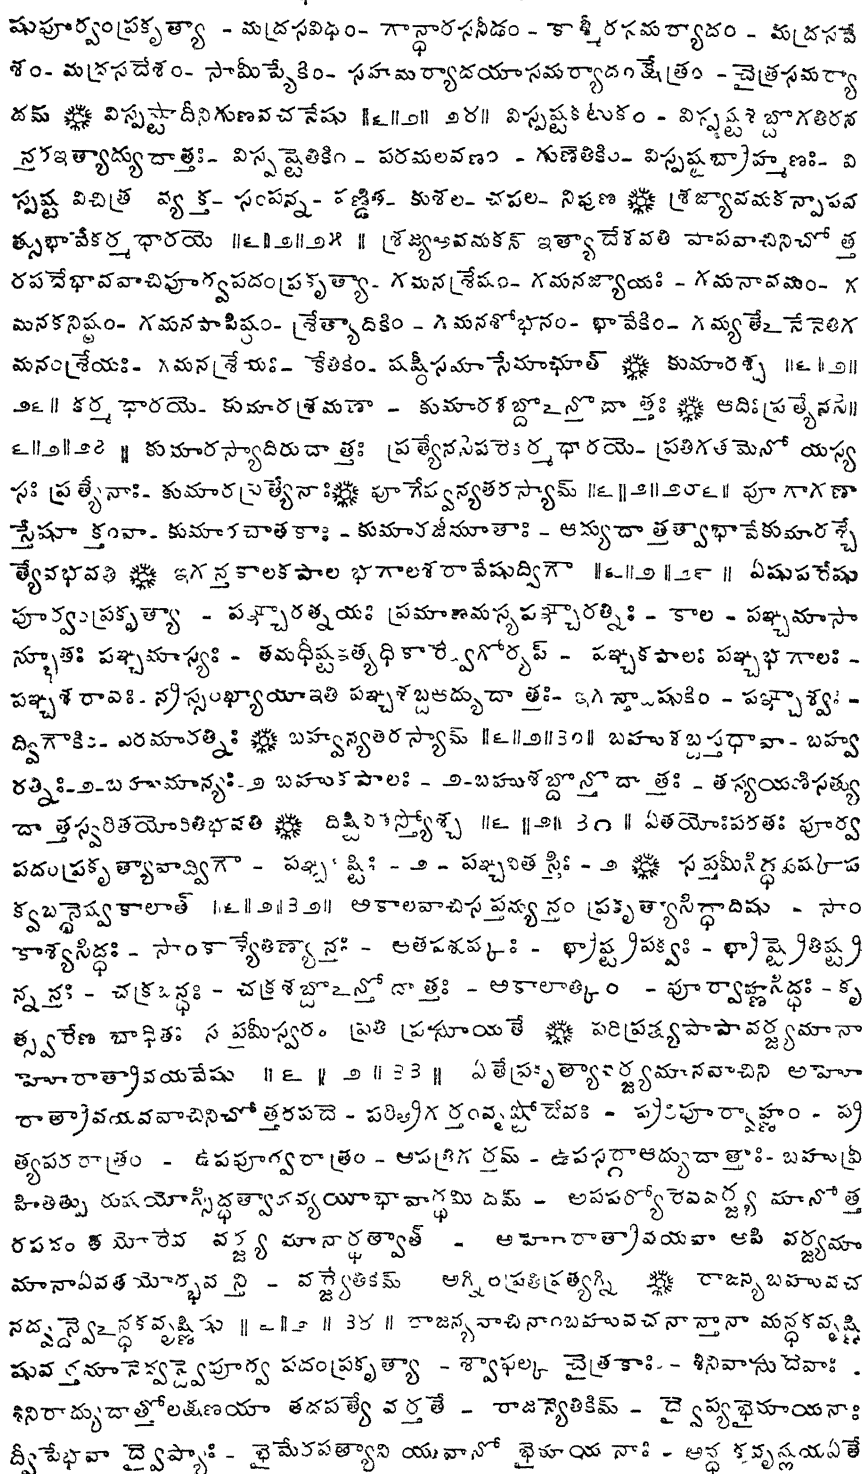 షుపూర్వంప్రకృత్యా - మద్రసవిధం- గాన్ధారసనీడం - కాశ్మీరసమర్యాదం - మద్రసవే
శం- మద్రసదేశం- సామీప్యేకిం- సహమర్యాదయాసమర్యాదంక్షేత్రం - చైత్రసమర్యా
దమ్ ❋ విస్పష్టాదీనిగుణవచనేషు ||౬||౨|| ౨౪|| విస్పష్టకటుకం - విస్పష్టశబ్దోగతిరన
న్తరఇత్యాద్యుదాత్తః- విస్పష్టేతికిం - పరమలవణం - గుణేతికిం- విస్పష్టబ్రాహ్మణః- వి
స్పష్ట విచిత్ర వ్యక్త- సంపన్న- పణ్డిత- కుశల- చపల- నిపుణ ❋ శ్రజ్యావమకన్పాపవ
త్సుభావేకర్మధారయె ||౬||౨||౨౫|| శ్రజ్యఅవమకన్ ఇత్యాదేశవతి పాపవాచినిచోత్త
రపదేభావవాచిపూర్వపదంప్రకృత్యా- గమనశ్రేష్ఠం- గమనజ్యాయః - గమనావమం- గ
మనకనిష్ఠం- గమనపాపిష్ఠం- శ్రేత్యాదికిం - గమనశోభనం- భావేకిం- గమ్యతేఽనేనేతిగ
మనంశ్రేయః- గమనశ్రేయః- కేతికిం- షష్ఠీసమాసేమాభూత్ ❋ కుమారశ్చ ||౬||౨||
౨౬|| కర్మధారయె- కుమారశ్రమణా - కుమారశబ్దోఽన్తోదాత్తః ❋ ఆదిఃప్రత్యేనసి||
౬||౨||౨౭|| కుమారస్యాదిరుదాత్తః ప్రత్యేనసిపరేకర్మధారయె- ప్రతిగతమేనో యస్య
సః ప్రత్యేనాః- కుమారప్రత్యేనాః❋ పూగేష్వన్యతరస్యామ్ ||౬||౨||౨౮|| పూగాగణా
స్తేషూక్తంవా- కుమారచాతకాః - కుమారజీమూతాః - ఆద్యుదాత్తత్వాభావేకుమారశ్చే
త్యేవభవతి ❋ ఇగన్తకాలకపాల భగాలశరావేషుద్విగౌ ||౬||౨||౨౯|| ఏషుపరేషు
పూర్వంప్రకృత్యా - పఞ్చారత్నయః ప్రమాణమస్యపఞ్చారత్నిః - కాల - పఞ్చమాసా
న్భూతః పఞ్చమాస్యః - తమధీష్టఇత్యధికారేద్విగోర్యప్ - పఞ్చకపాలః పఞ్చభగాలః -
పఞ్చశరావః- న్రిస్సంఖ్యాయాఇతి పఞ్చశబ్దఆద్యుదాత్తః- ఇగన్తాదిషుకిం - పఞ్చాశ్వః -
ద్విగౌకిం- పరమారత్నిః ❋ బహ్వన్యతరస్యామ్ ||౬||౨||౩౦|| బహుశబ్దస్తథావా- బహ్వ
రత్నిః-౨-బహుమాస్యః-౨ బహుకపాలః - ౨-బహుశబ్దోన్తోదాత్తః - తస్యయణిసత్యు
దాత్తస్వరితయోరితిభవతి ❋ దిష్టివితస్త్యోశ్చ ||౬||౨|| ౩౧ || ఏతయోఃపరతః పూర్వ
పదంప్రకృత్యావాద్విగౌ - పఞ్చదిష్టిః - ౨ - పఞ్చవితస్తిః - ౨ ❋ సప్తమీసిద్ధశుష్కప
క్వబన్ధేష్వకాలాత్ ||౬||౨||౩౨|| అకాలవాచిసప్తమ్యన్తం ప్రకృత్యాసిద్ధాదిషు - సాం
కాశ్యసిద్ధః - సాంకాశ్యేతిణ్యాన్తః - ఆతపశుష్కః - భ్రాష్ట్రపక్వః - భ్రాష్ట్రేతిష్ట్ర
న్నన్తః - చక్రబన్ధః - చక్రశబ్దోఽన్తోదాత్తః - అకాలాత్కిం - పూర్వాహ్ణసిద్ధః - కృ
త్స్వరేణ బాధితః సప్తమీస్వరం ప్రతి ప్రసూయతే ❋ పరిప్రత్యుపాపావర్జ్యమానా
హోరాత్రావయవేషు ||౬||౨||౩౩|| ఏతేప్రకృత్యావర్జ్యమానవాచిని అహో
రాత్రావయవవాచినిచోత్తరపదె - పరిత్రిగర్తంవృష్టోదేవః - ప్రతిపూర్వాహ్ణం - ప్ర
త్యపరరాత్రం - ఉపపూర్వరాత్రం - అపత్రిగర్తమ్ - ఉపసర్గాఆద్యుదాత్తాః- బహువ్రీ
హితత్పురుషయోస్సిద్ధత్వాదవ్యయీభావార్థమిదమ్ - అపపర్యోరేవవర్జ్యమానోత్త
రపదం తయోరేవ వర్జ్యమానార్థత్వాత్ - అహోరాత్రావయవా అపి వర్జ్యమా
మానాఏవతయోర్భవన్తి - వర్జ్యేతికిమ్ అగ్నింప్రతిప్రత్యగ్ని ❋ రాజన్యబహువచ
నద్వన్ద్వేఽన్ధకవృష్ణిషు ||౬||౨||౩౪|| రాజన్యవాచినాంబహువచనాన్తానా మన్ధకవృష్ణి
షువర్తమానేద్వన్ద్వేపూర్వపదంప్రకృత్యా - శ్వాఫల్కచైత్రకాః - శినివాసుదేవాః -
శినిరాద్యుదాత్తోలక్షణయా తదపత్యే వర్తతే - రాజన్యేతికిమ్ - ద్వైప్యభైమాయనాః
ద్వీపేభవా ద్వైప్యాః - భైమేరపత్యాని యువానో భైమాయనాః - అన్ధకవృష్ణయఏతే